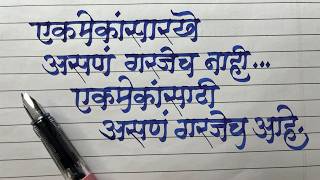 एकमेकांसारखे
असणं गरजेच नाही...
एकमेकांसाठी
असणं गरजेच आहे.